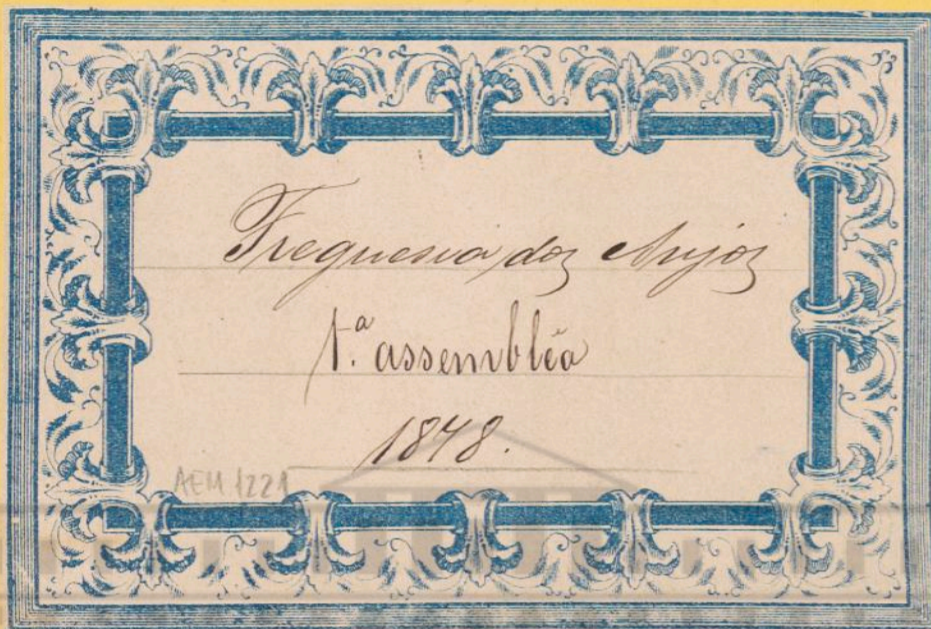 Freguesia dos Anjos
1.ª assembléa
1878.
AEM 1221